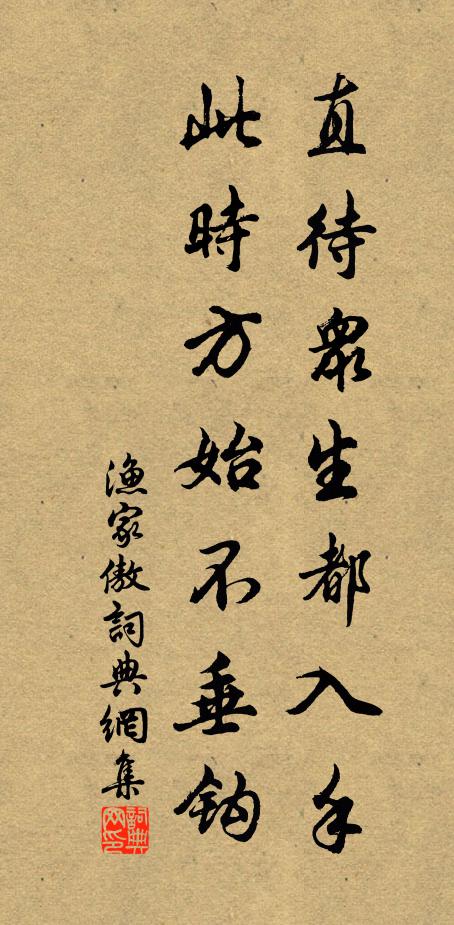 直待衆生都入手
此時方始不垂鈎
漁家傲詞典網集
詞典
网印